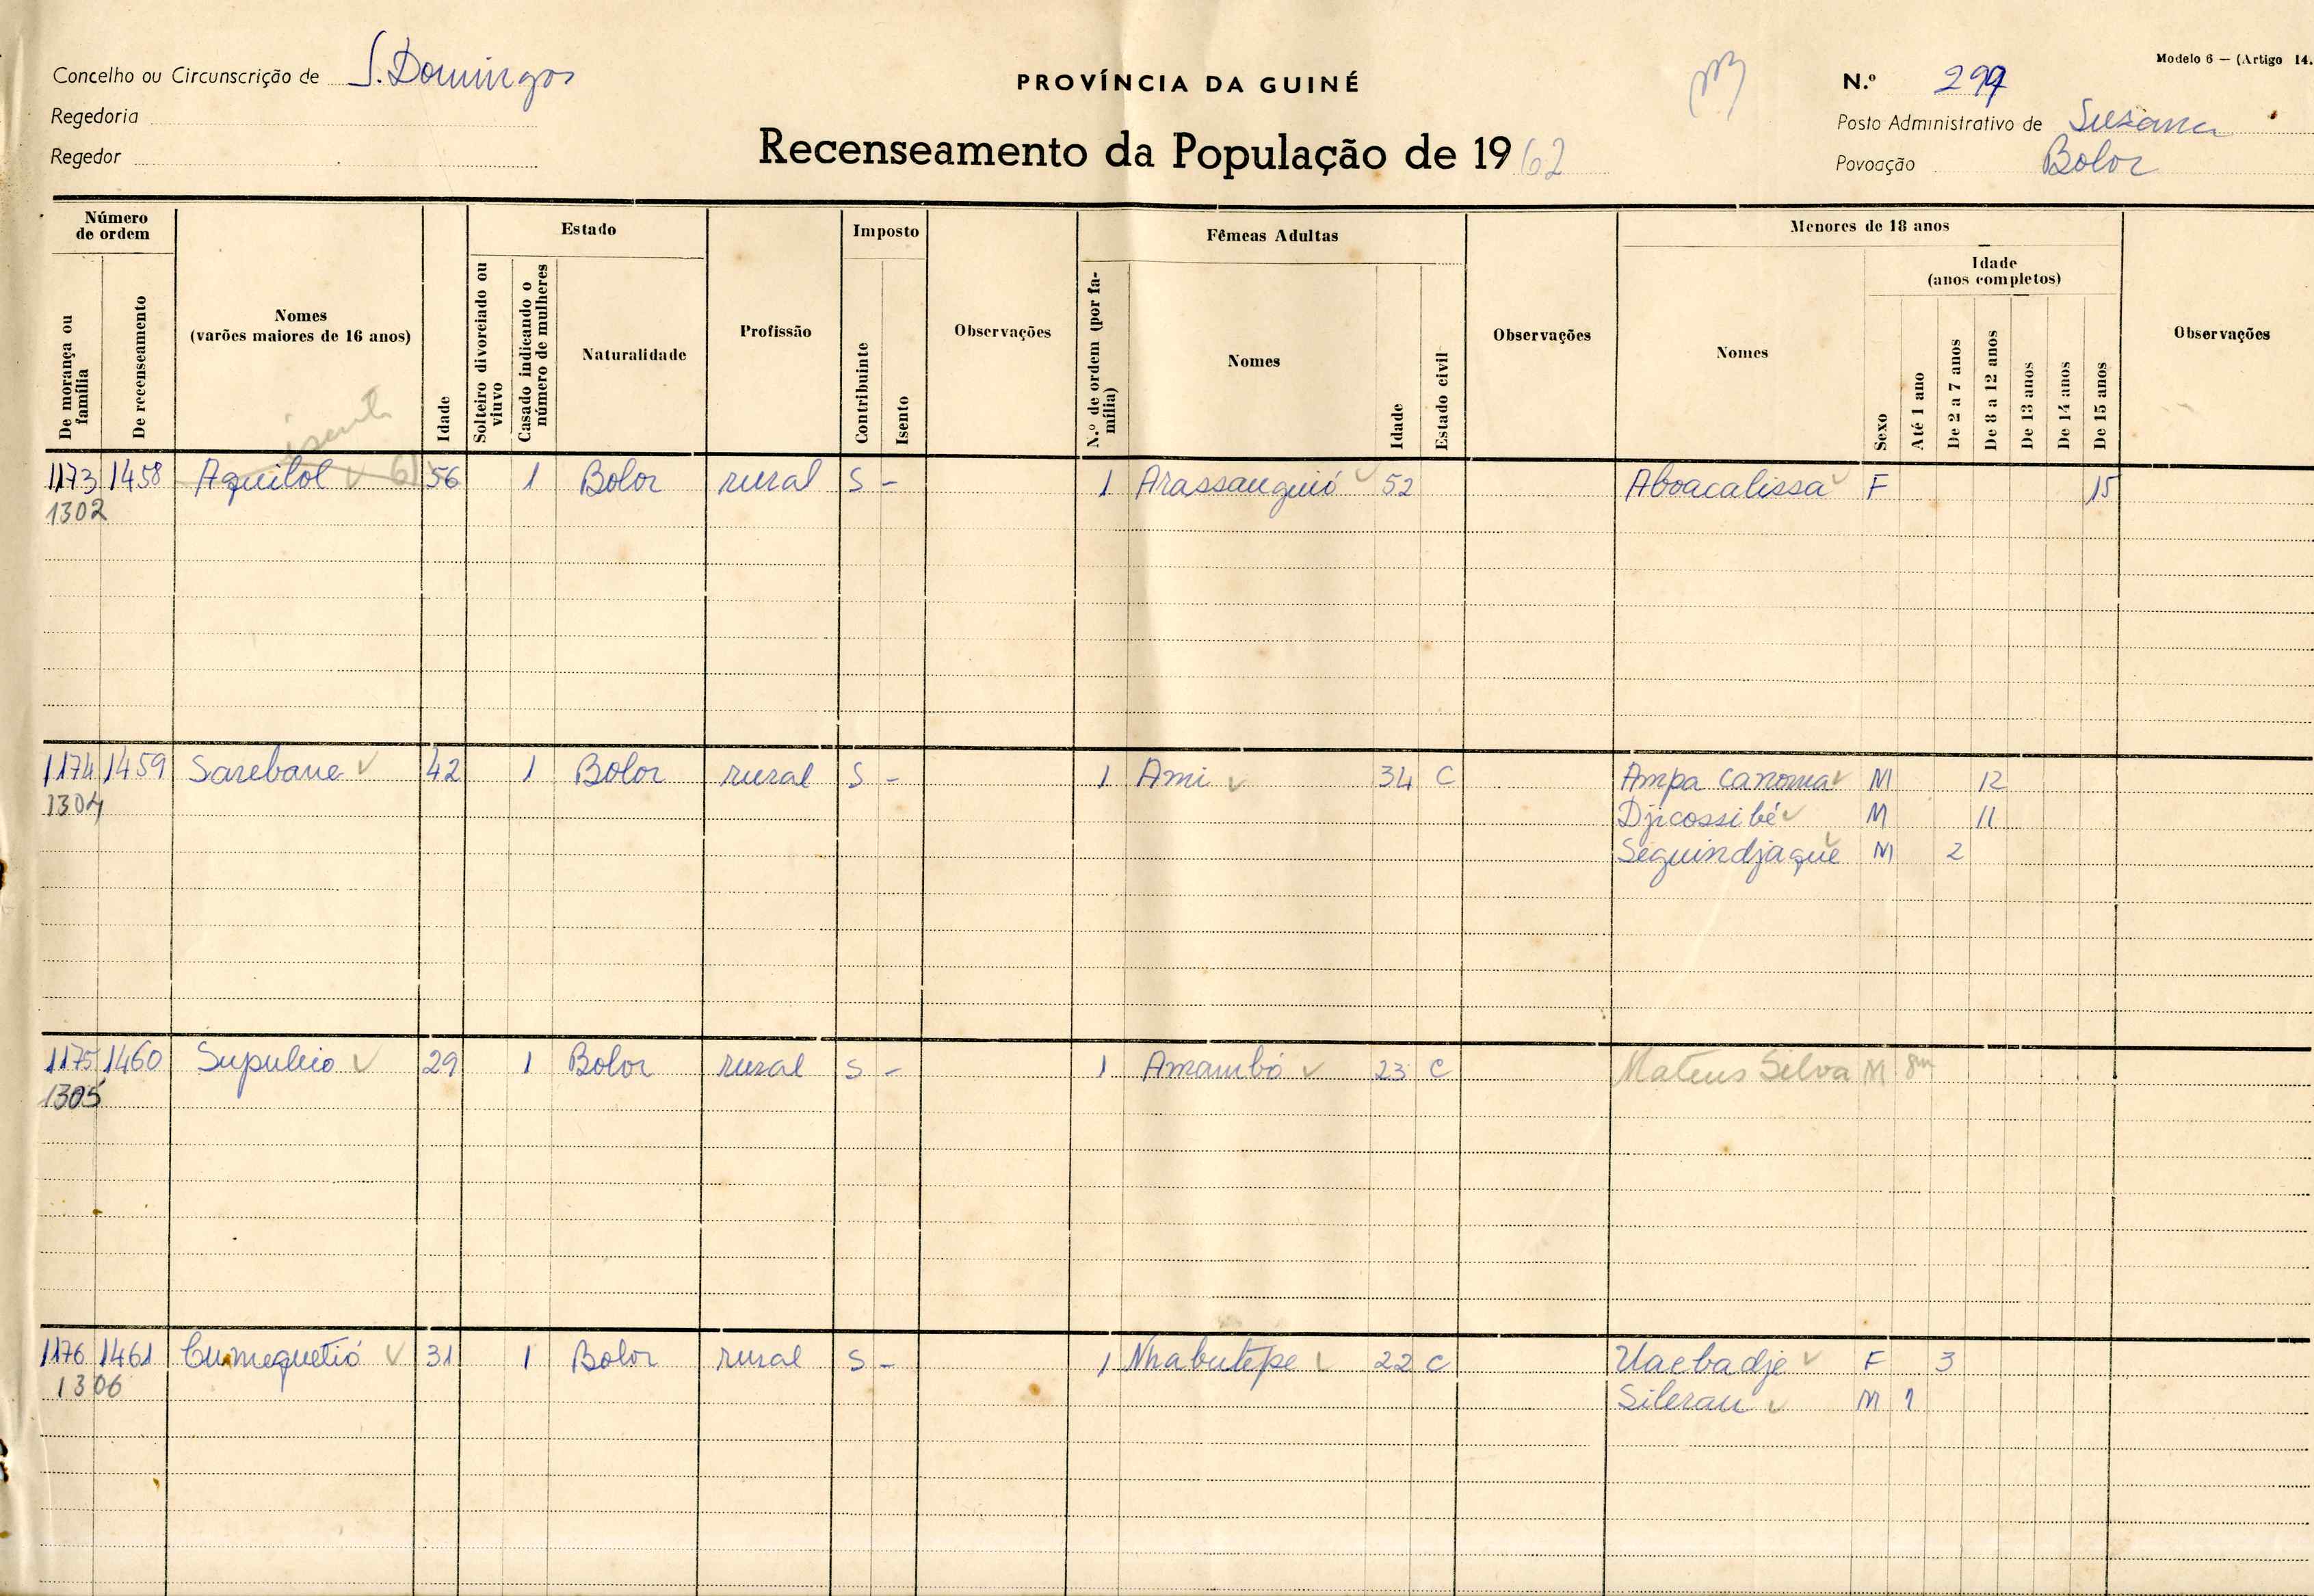 Modelo 6 — (Artigo 14.
Concelho ou Circunscrição de S. Domingos
PROVÍNCIA DA GUINÉ
N.º 297
Regedoria
Posto Administrativo de Susana
Regedor
Recenseamento da População de 1962
Povoação Bolor
Número de ordem
Estado
Imposto
Fêmeas Adultas
Menores de 18 anos
Idade
(anos completos)
De morança ou família
De recenseamento
Nomes
(varões maiores de 16 anos)
Idade
Solteiro divorciado ou viuvo
Casado indicando o número de mulheres
Naturalidade
Profissão
Contribuinte
Isento
Observações
N.º de ordem (por família)
Nomes
Idade
Estado civil
Observações
Nomes
Sexo
Até 1 ano
De 2 a 7 anos
De 8 a 12 anos
De 13 anos
De 14 anos
De 15 anos
Observações
isento
1173 1458 Aquilol 61 56 1 Bolor rural S - 1 Arassanguió 52 Aboacalissa F 15
1302
1174 1459 Sarebane 42 1 Bolor rural S - 1 Ami 34 C Ampa canoma M 12
1304 Djicossibé M 11
Seguindjaque M 2
1175 1460 Supulio 29 1 Bolor rural S - 1 Amambó 23 C Mateus Silva M 8m
1305
1176 1461 Cumequetió 31 1 Bolor rural S - 1 Nhabutepe 22 C Uaebadje F 3
1306 Sileran M 1